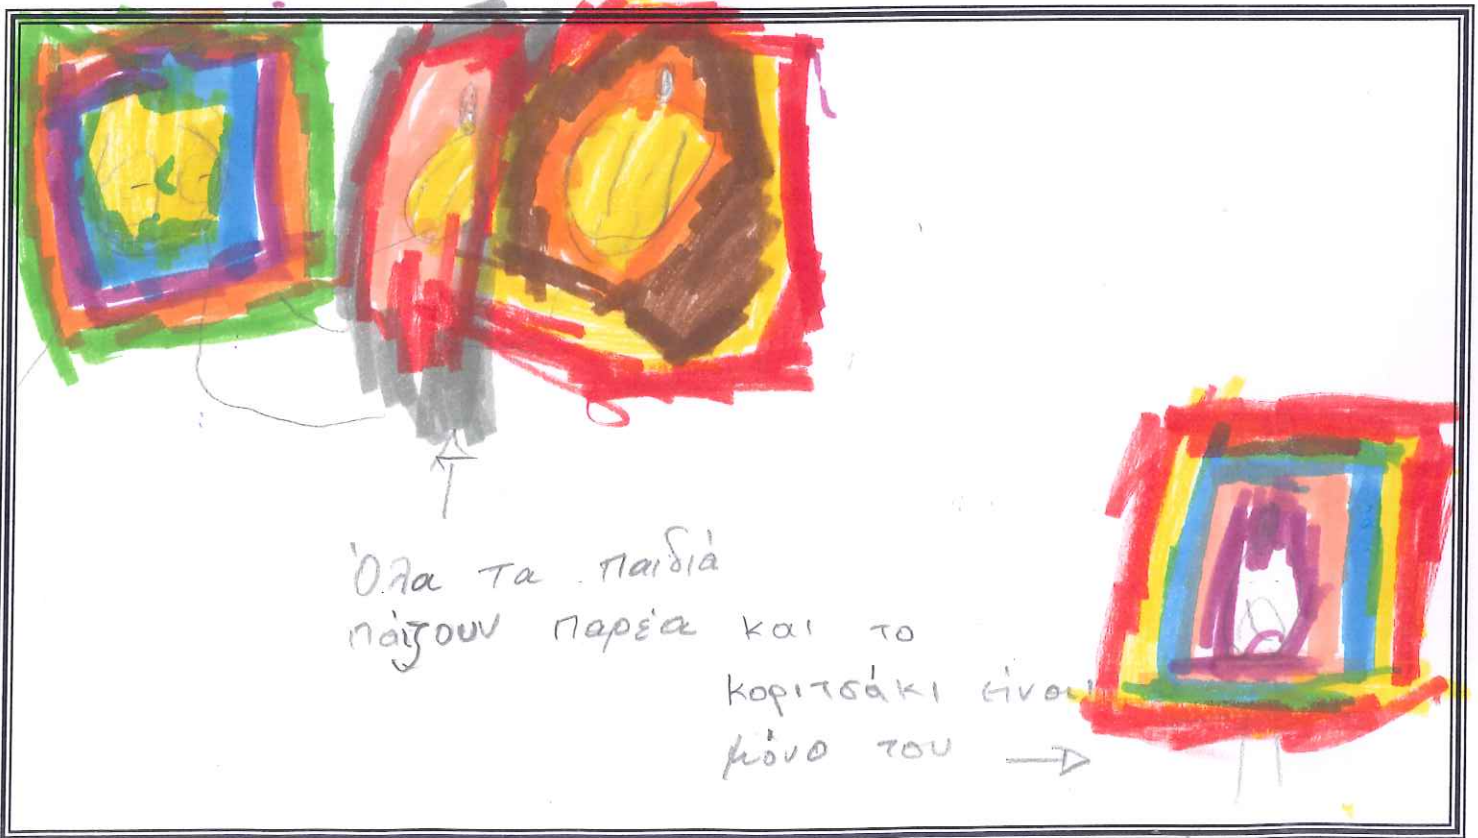 Όλα τα παιδιά
παίζουν παρέα και το
κοριτσάκι είναι
μόνο του